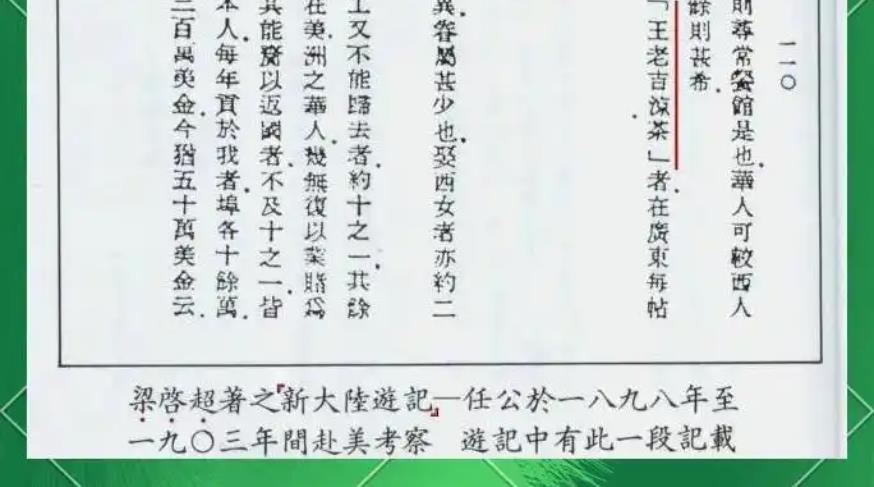 一一〇
則尋常餐館是也。華人可較西人
餘則甚希。
「王老吉涼茶」者。在廣東每帖
眷屬甚少也。娶西女者亦約二
又不能歸去者。約十之一。其餘
在美洲之華人。幾無復以業賭為
其能齎以返國者。不及十之一。皆
本人。每年貢於我者。埠各十餘萬。
三百萬美金。今猶五十萬美金云。
梁啓超著之「新大陸遊記」—任公於一八九八年至
一九〇三年間赴美考察 遊記中有此一段記載